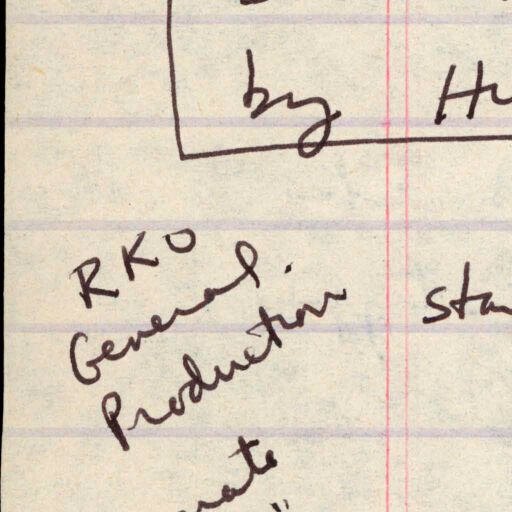 by Hu
RKO
General.
Production
sta